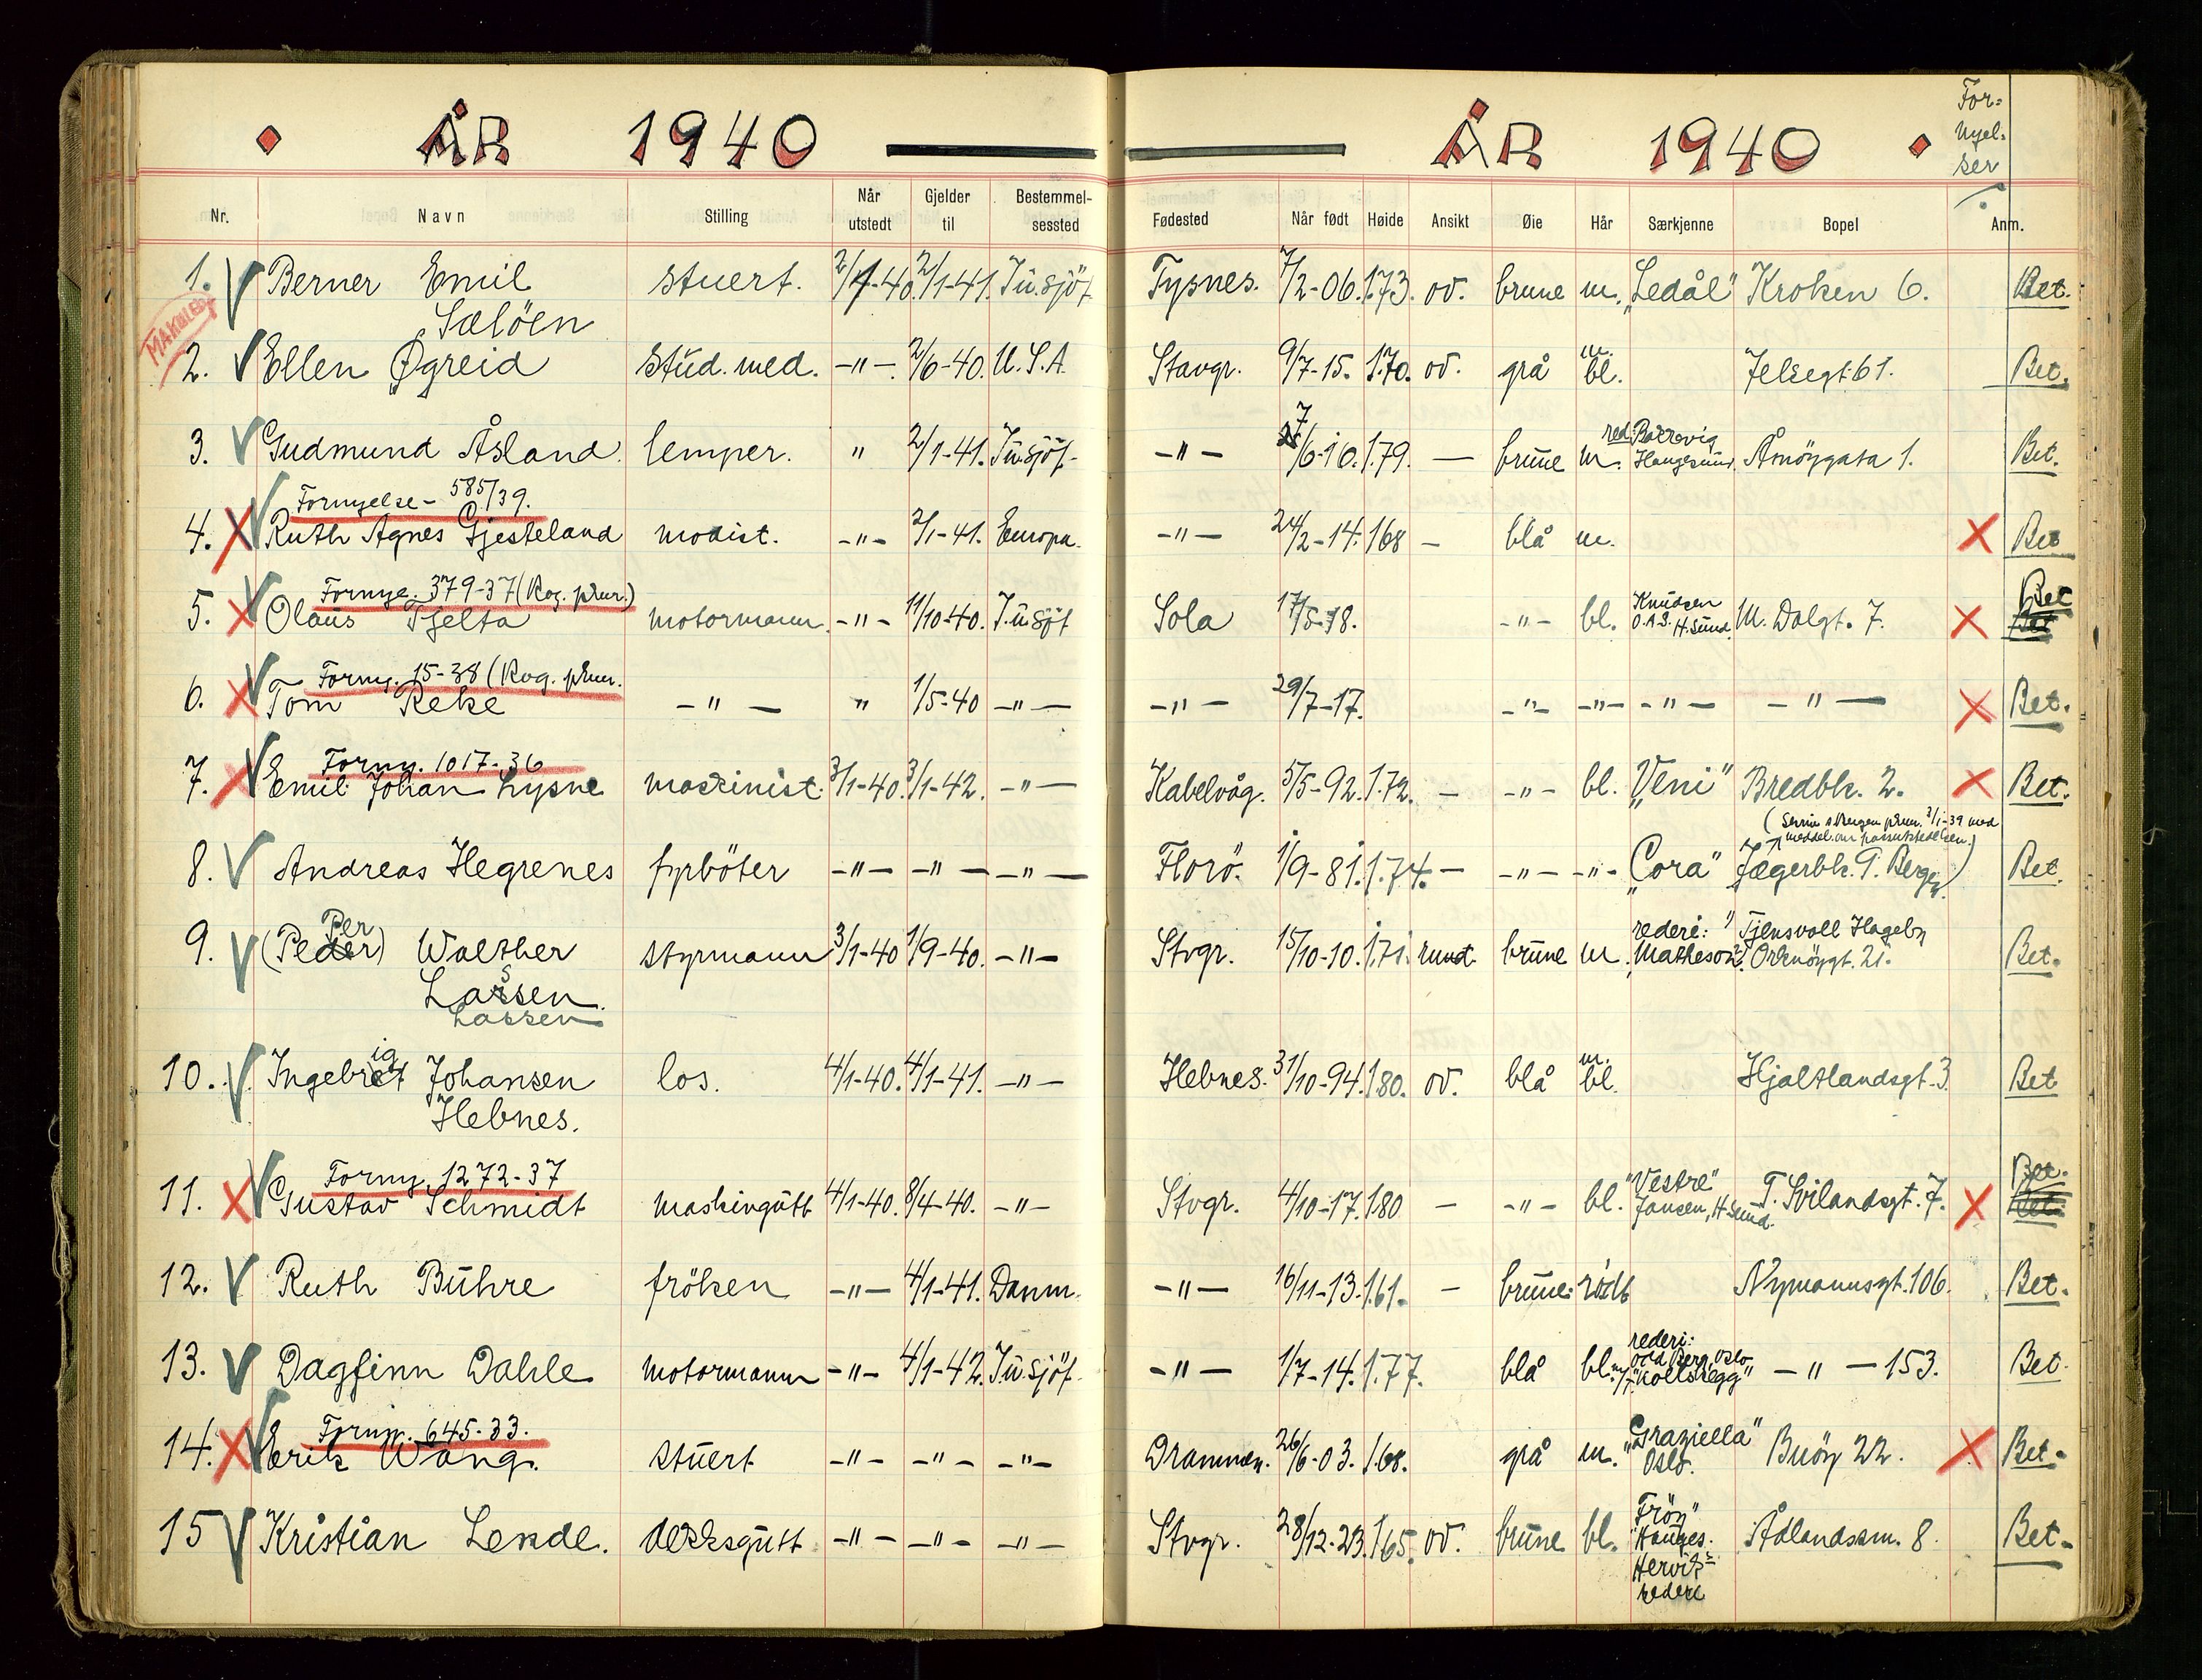 ÅR 1940
ÅR 1940
For=
nyel=
ser
Nr. Navn Stilling Når utstedt Gjelder til Bestemmel-sessted Fødested Når født Høide Ansikt Øie Hår Særkjenne Bopel Anm.
1. Berner Emil Sæløen stuert. 2/1-40. 2/1-41. Tu.sjöf. Tysnes. 7/2-06. 1.73. ov. brune m. „Ledål" Kroken 6. Bet.
MAKULERT
2. Ellen Øgreid stud. med. -"- 2/6-40. U.S.A. Stavgr. 9/7-15. 1.70. ov. grå m. bl. Jelsegt. 61. Bet.
3. Gudmund Åsland. lemper. " 2/1-41. Tu.sjöf. -"- 7/6-10. 1.79. — brune m. red. Haugesund. Åmöygata 1. Bet.
Fornyelse - 585/39.
4. Ruth Agnes Gjesteland modist. -"- 2/1-41. Europa. -"- 24/2-14. 168 - blå m. Bet
Fornye. 379-37 (Rog. pkmr.)
5. Olaus Tjelta motormann. -"- 11/10-40. Tu.sjöf Sola 17/5-18. -"- bl. Knudsen O.A.S. H.sund. M. Dalgt. 7. Bet
6. Forny. 15-38 (Rog. pkmr.
Tom Reke -"- " 1/5-40 -"- -"- 29/7-17. -"- -"- -"- -"- Bet.
Forny. 1017-36
7. Emil Johan Lysne maskinist. 3/1-40. 3/1-42. -"- Kabelvåg. 5/5-92. 1.72. - -"- bl. „Veni" Bredbk. 2. Bet.
8. Andreas Hegrenes fyrböter -"- -"- -"- Florö. 1/9-81. 1.74. - -"- -"- „Cora" Jægerbk. 9. Bergen Bet.
9. (Peder) Per Walther Lassen. Lassen styrmann 3/1-40 1/9-40. -"- Stvgr. 15/10-10. 1.71. rund brune m. rederi: „Matheson" Tjensvoll Hageby Orknöygt. 21. Bet.
10. Ingebrigt Johansen Hebnes. los. 4/1-40. 4/1-41. -"- Hebnes. 31/10-94. 1.80. ov. blå m. bl. Hjaltlandsgt. 3. Bet
Forny. 1272-37
11. Gustav Schmidt maskingutt 4/1-40. 8/4-40. -"- Stvgr. 4/10-17. 1.80 - -"- bl. "Vestre" Jansen, H.sund. T. Svilandsgt. 7. Bet.
12. Ruth Buhre fröken -"- 4/1-41. Danm. -"- 16/11-13. 1.61. - brune. rödt Nymannsgt. 106. Bet.
13. Dagfinn Dahle motormann -"- 4/1-42. Tu.sjöf. -"- 1/7-14. 1.77. blå bl. rederi: Odd Berg, Oslo m/t "Kollskegg" -"- 153. Bet
Forny. 645-33.
14. Erik Wang. stuert -"- -"- -"- Drammen. 26/6-03. 1.68. grå m. "Graziella" Oslo. Buöy 22. Bet.
15 Kristian Lende. dekksgutt -"- -"- -"- Stvgr. 28/12-23. 1.65. ov. brune bl. "Fröy" Hauges. Ådlandssm. 8. Bet.